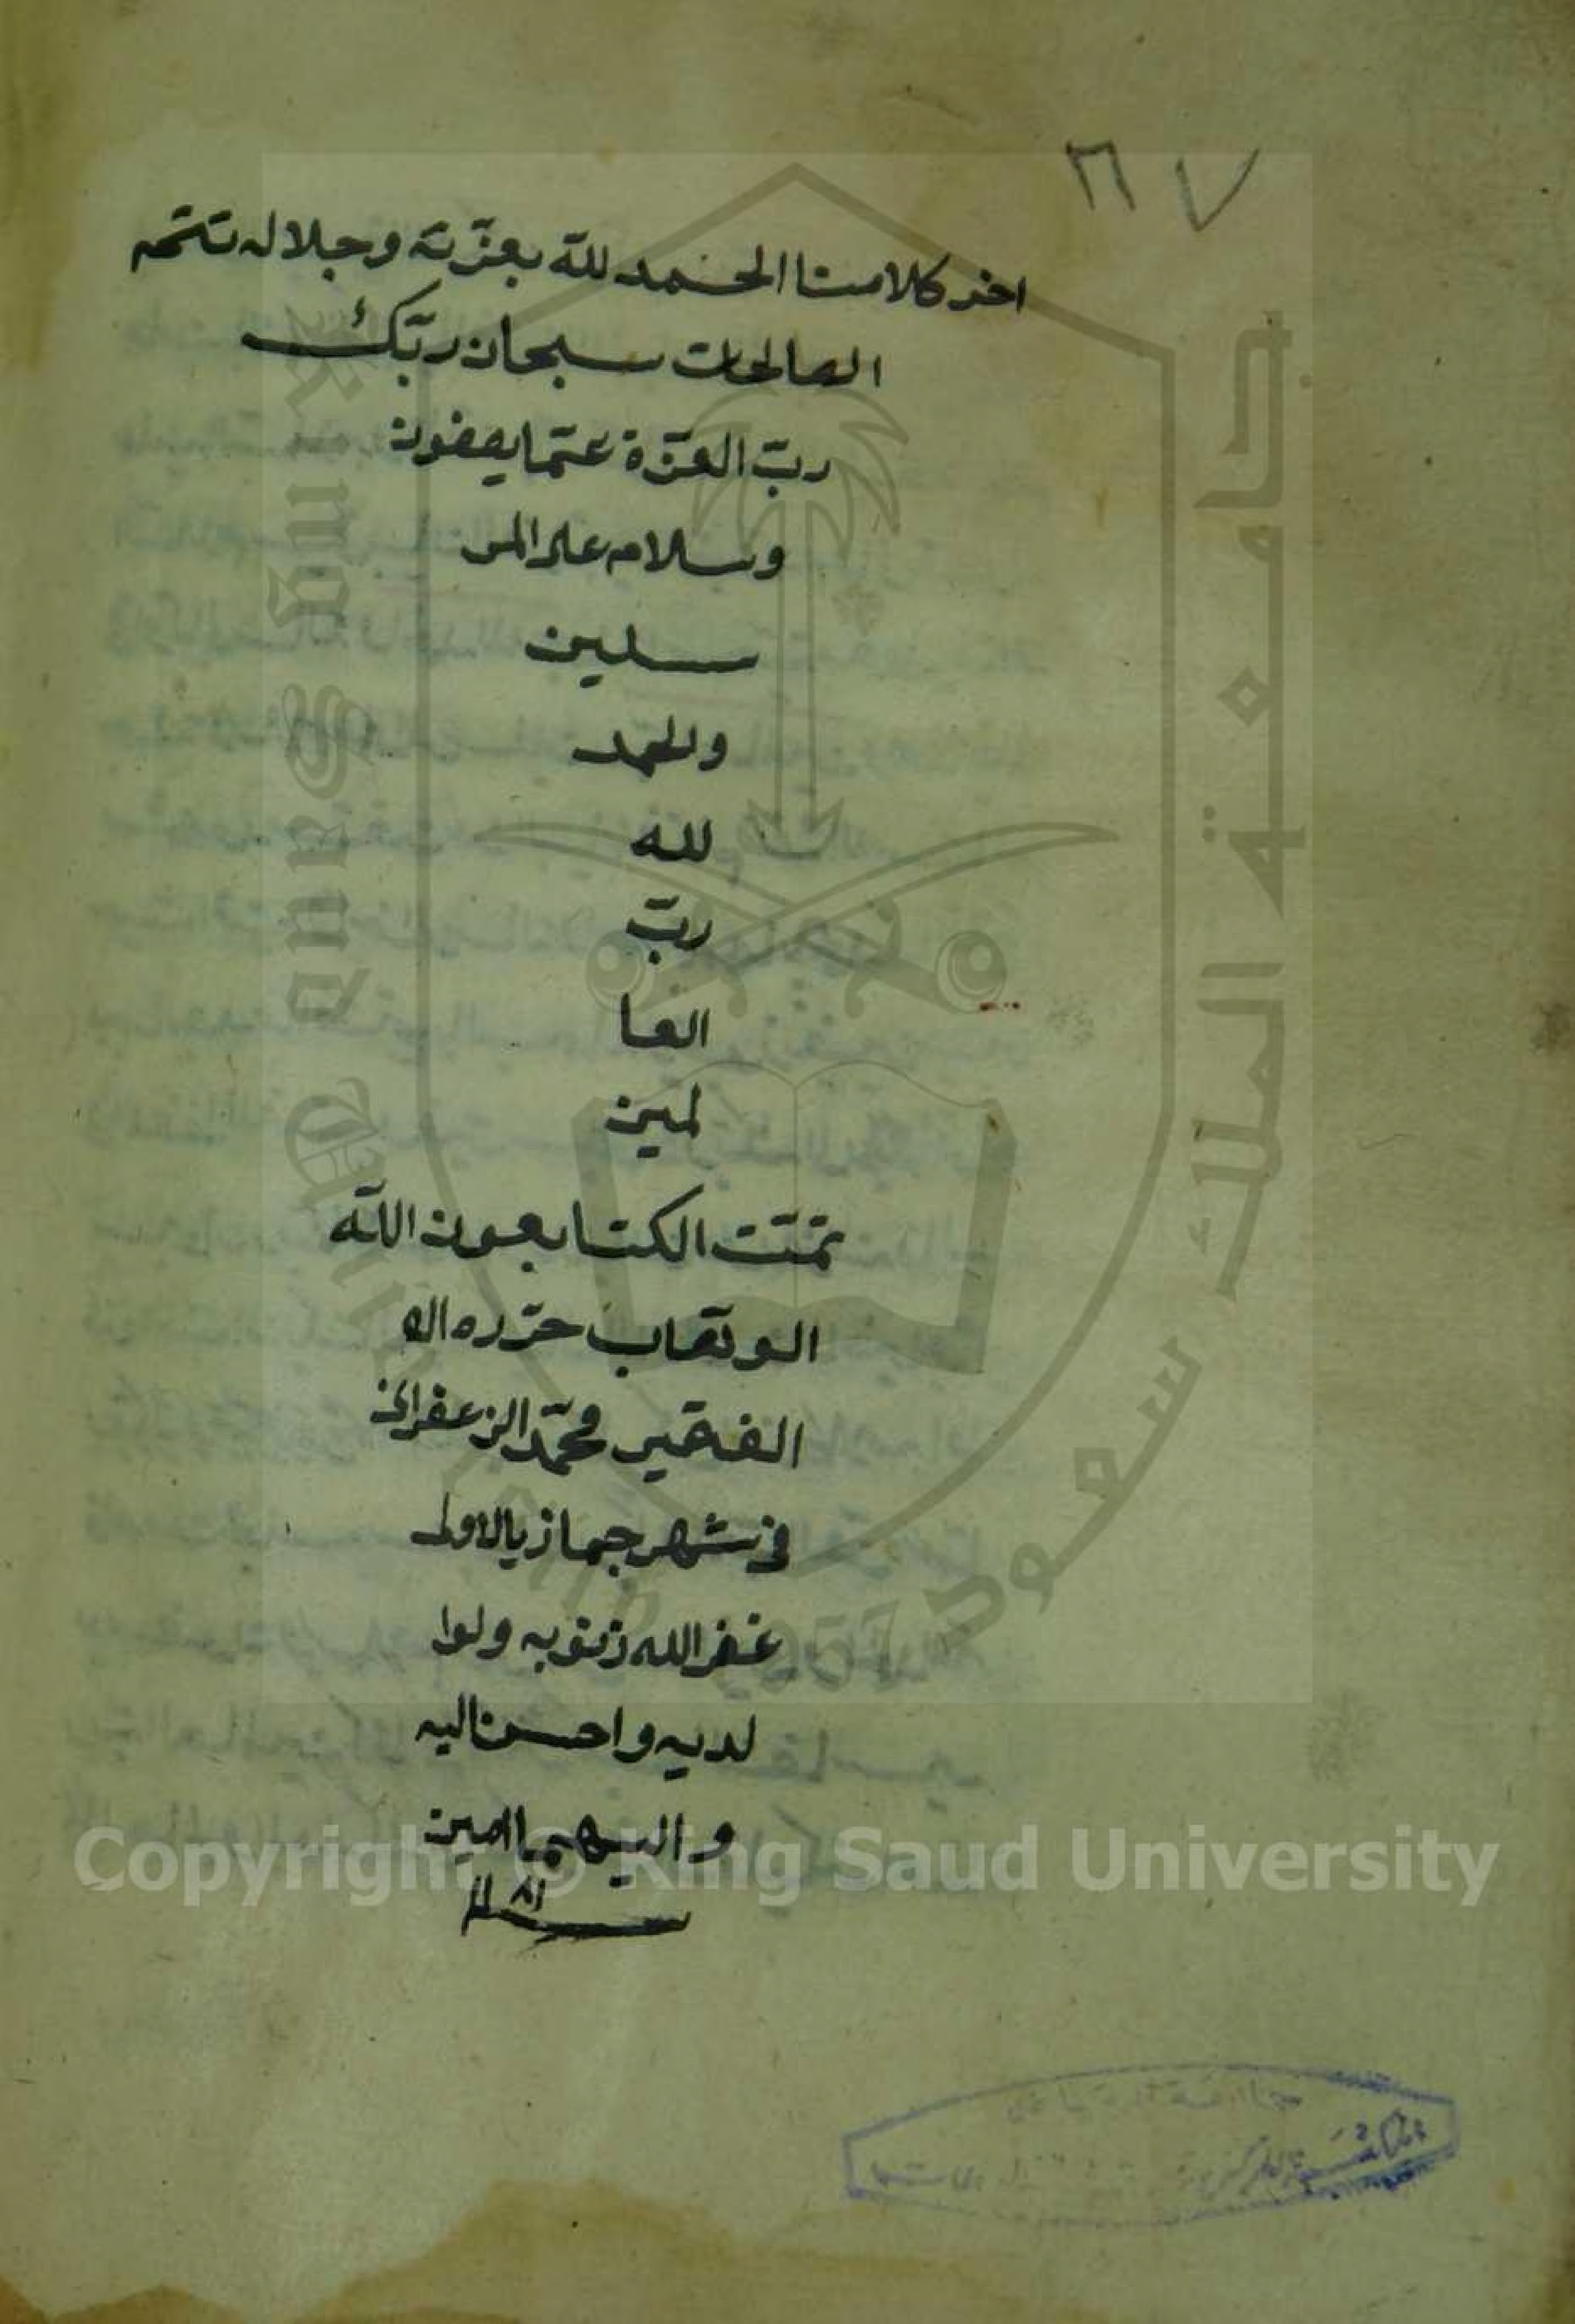 ٦٧
اخر كلامنا الحمد لله بعزّته وجلاله تتم
الصالحات سبحان ربّك
ربّ العزّة عمّا يصفون
وسلام على المر
سلين
والحمد
لله
ربّ
العا
لمين
تمّت الكتا بعون الله
الوهّاب حرّره
الفقير محمّد الزعفرانى
فى شهر جماذي الاولى
غفر الله ذنوبه ولوا
لديه واحسن اليه
واليهما امين
سنة
جامعة الملك سعود
King Saud University
1957
Copyright © King Saud University